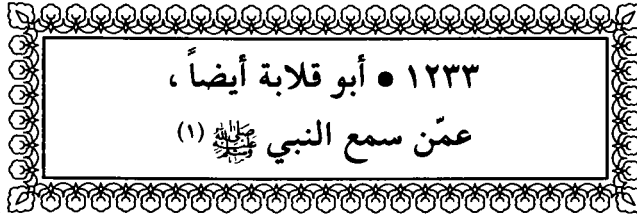 ١٢٣٣ ● أبو قلابة أيضاً ،
عمّن سمع النبي ﷺ (١)